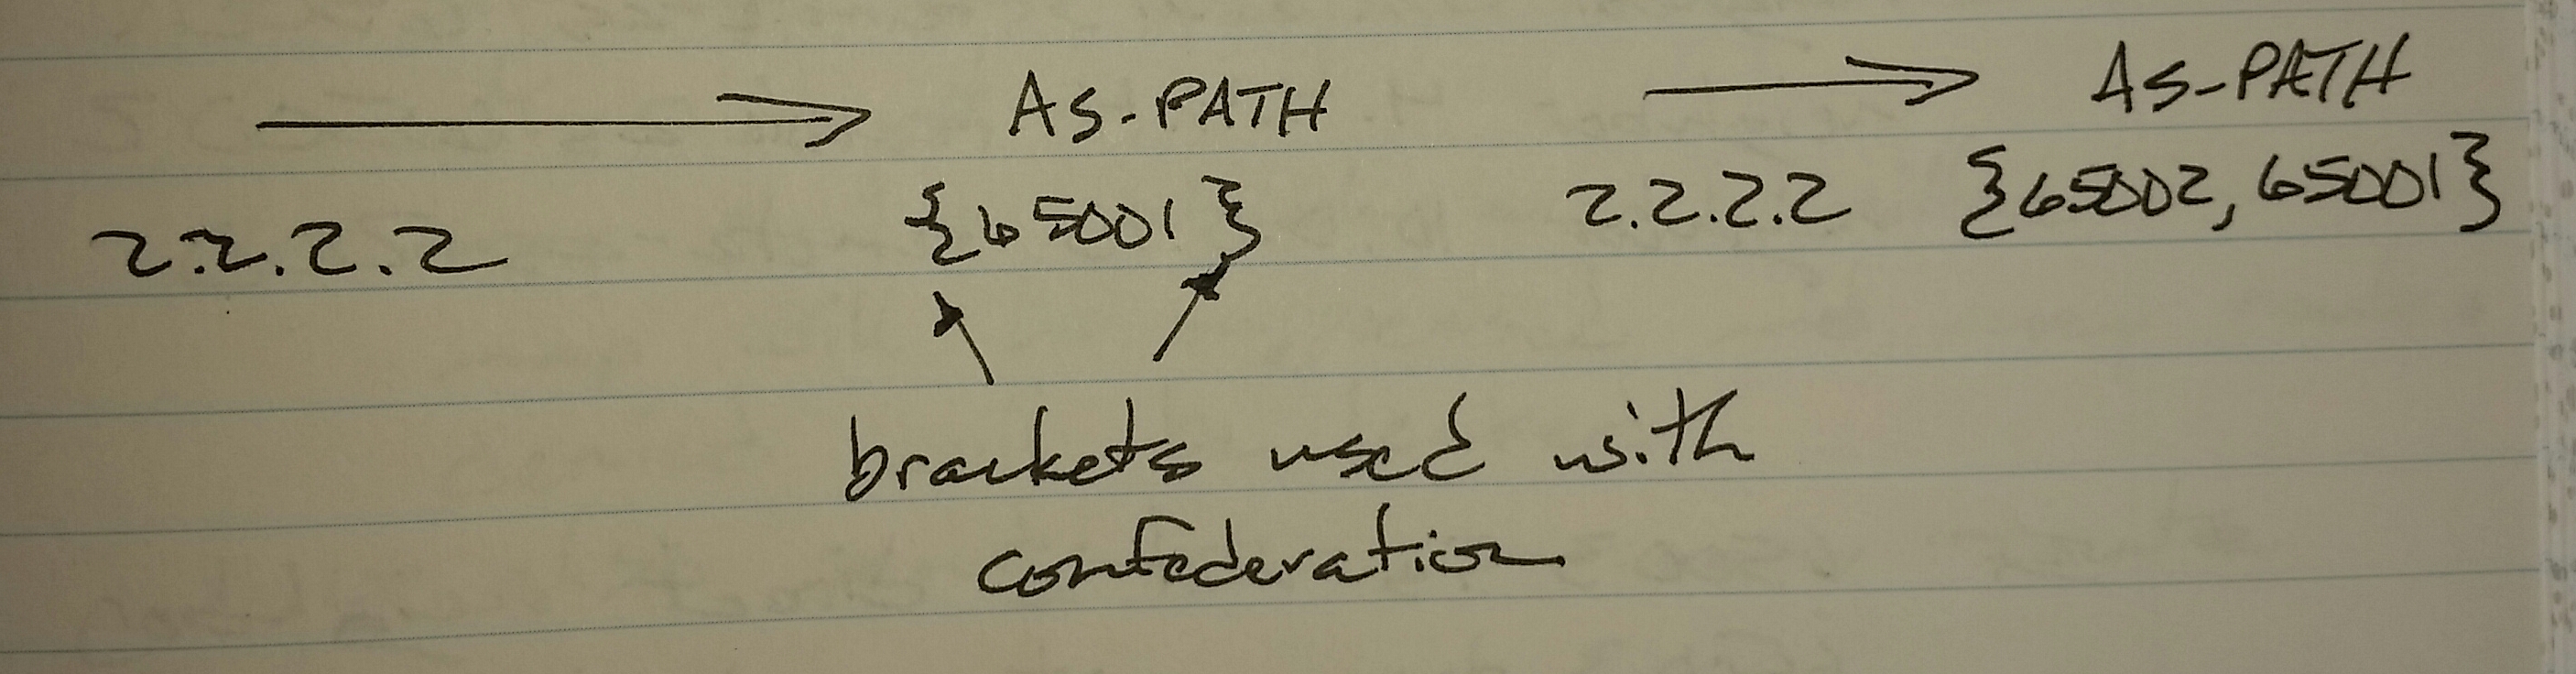 AS-PATH
AS-PATH
2.2.2.2 {65001} 2.2.2.2 {65002, 65001}
brackets used with
confederation